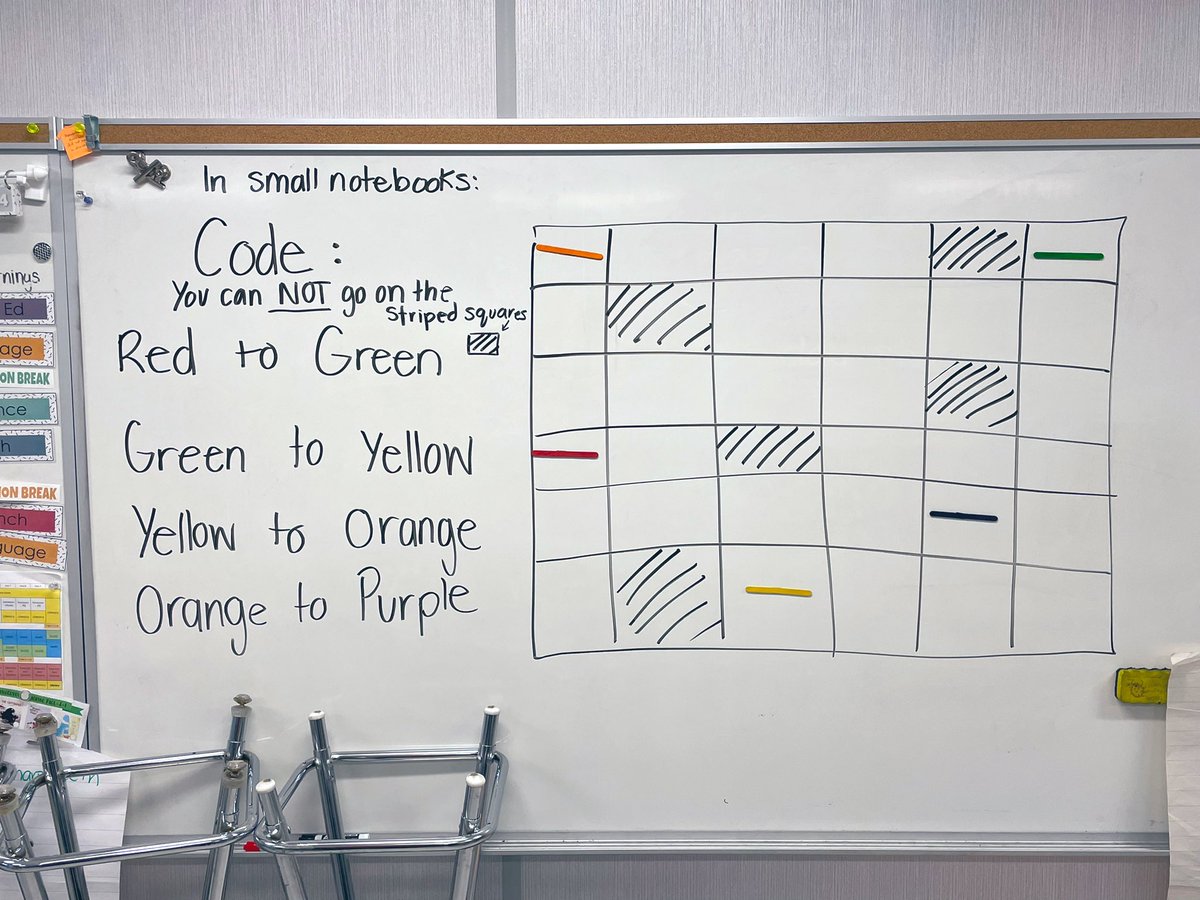 In small notebooks:
Code:
You can NOT go on the
striped squares
Red to Green
Green to Yellow
Yellow to Orange
Orange to Purple
Ed
age
ON BREAK
nce
h
ON BREAK
nch
guage